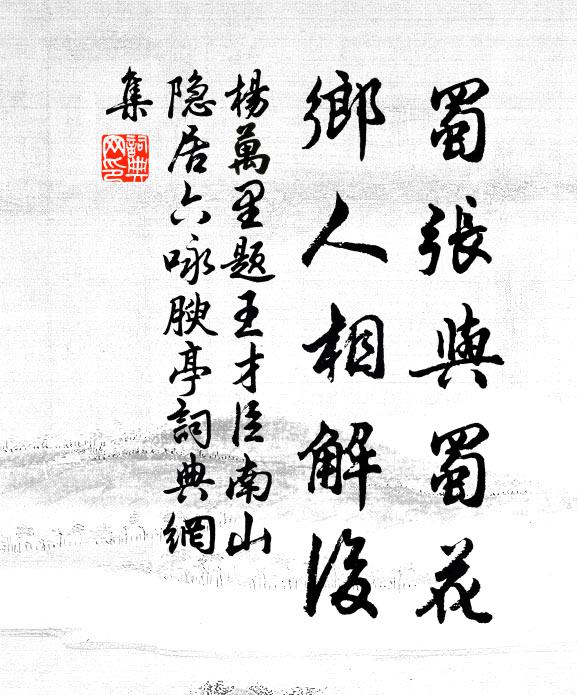 蜀張與蜀花
鄉人相解後
楊萬里題王才臣南山
隐居六咏腴亭詞典網
集
詞典網印